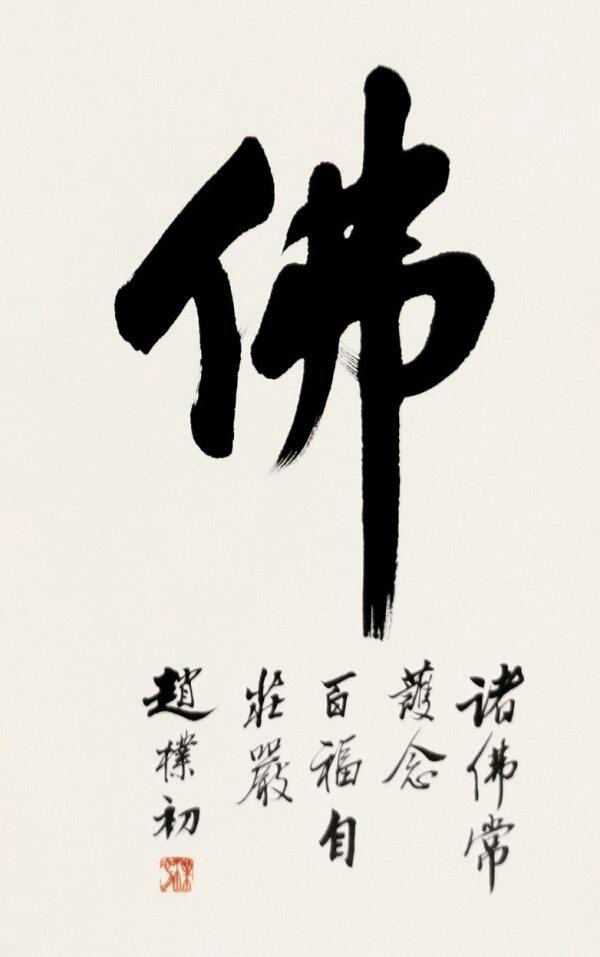 佛
諸佛常
護念
百福自
莊嚴
趙樸初